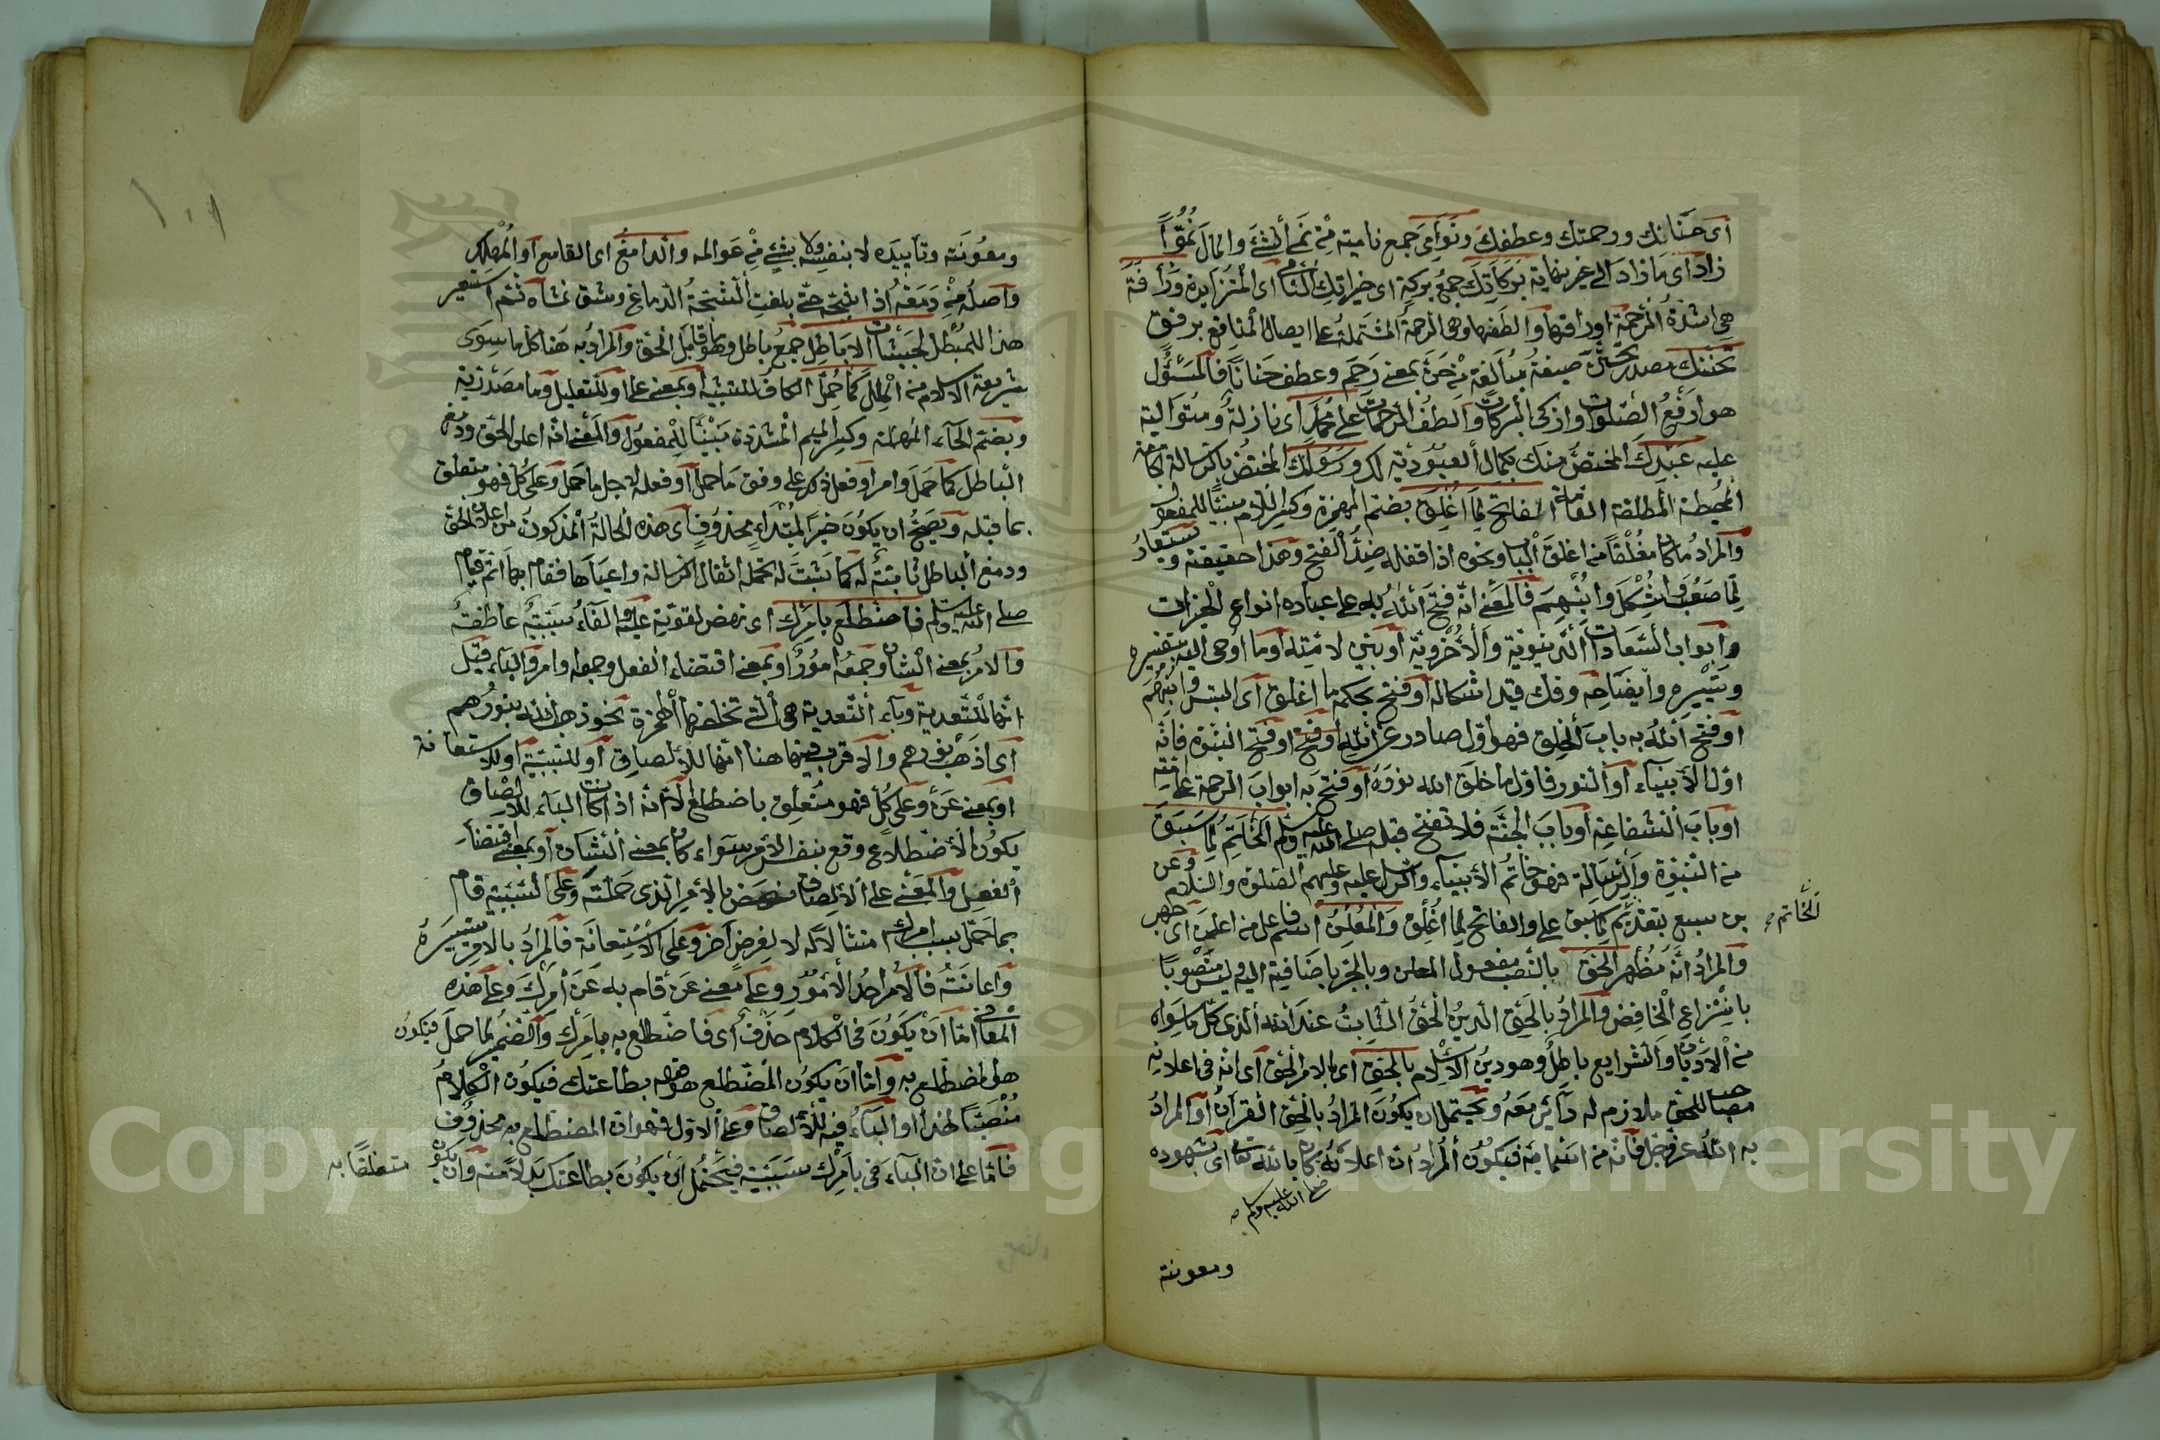 أى حنانك ورحمتك وعطفك ونوامى جمع نامية من نمى الشئ والمال نموا
زاد اى ما زاد الى غير نهاية بركاتك جمع بركة اى خيراتك التام اى المتزايدة ورأفة
هى اشدة الرحمة او رافتها والطفها وهى الرحمة المشتملة على ايصال المنافع برفق
تحننك مصدر تحنن صيغة مبالغة من حن بمعنى رحم وعطف حنانا فالمسئول
هو ارفع الصلوات وازكى البركات والطف الرحمات على محمد اى نازلة ومتوالية
عليه عبدك المختص منك بكمال العبودية لك ورسولك المختص بالرسالة الكاملة
المحيطة المطلقة العامة الفاتح لما اغلق بضم الهمزة وكسر اللام مبنيا للمفعول
والمراد ما كان مغلقا من اغلق الباب ونحوه اذا قفله ضد الفتح وهذا حقيقة ويستعار
لما صعب واشكل وانبهم فالمعنى انه فتح الله به على عباده انواع الخيرات
وابواب السعادات الدنيوية والاخروية او بين لامته ما اوحى اليه بتفسيره
وتيسيره وايضاحه وفك قيد اشكاله او فتح بحكمه ما اغلق اى التبس وانبهم
او فتح الله به باب الخلق فهو اول صادر عن الله او فتح به النبوة فانه
اول الانبياء او النور فاول ما خلق الله نوره او فتح به ابواب الرحمة على امته
او باب الشفاعة او باب الجنة فلا تفتح قبله صلى الله عليه وسلم الخاتم لما سبق
من النبوة والرسالة فهو خاتم الأنبياء والرسل عليه وعليهم الصلوة والسلام وعن
بن سبع بتقديم لما سبق على والفاتح لما أغلق والمعلن اسم فاعل من اعلن اى جهر
الخاتم صح
والمراد أنه مظهر الحق بالنصب مفعول المعلن وبالجر باضافته اليه وليس منصوبا
بانتزاع الخافض والمراد بالحق الدين الحق الثابت عند الله الذى كل ما سواه
من الاديان والشرايع باطل وهو دين الاسلام بالحق أى بالامر الحق اى انه فى اعلانه
مصاحب للحق ملازم له دائر معه ويحتمل ان يكون المراد بالحق القرآن او المراد
به الله عز وجل فانه من اسمائه فيكون المراد ان اعلانه كان بالله تعالى اى بشهوده
صلى الله عليه وسلم صح
ومعونته
ومعونته وتاييده لا بنفسه ولا بشئ من عوالمه والدامغ اى القامع او المهلك
واصله من دمغه اذا شجه حتى بلغت الشجة الدماغ وشق غشاه ثم استعير
هذا للمبطل لجيشات الاباطل جمع باطل وهو ما قابل الحق والمراد به هنا كل ما سوى
شريعة الاسلام من الملل كما حمل الكاف للتشبيه او بمعنى على او للتعليل وما مصدرية
وبضم الحاء المهملة وكسر الميم المشددة مبنيا للمفعول والمعنى انه اعلى الحق ودمغ
الباطل كما حمل وامر او فعل ذلك على وفق ما حمل او فعله لاجل ما حمل وعلى كل فهو متعلق
بما قبله ويصح ان يكون خبرا لمبتداء محذوف اى هذه الحالة المذكورة من اعلان الحق
ودمغ الباطل ثابتة له كما ثبت له تحمل اثقال الرسالة واعباها فقام بها اتم قيام
صلى الله عليه وسلم فاضطلع بامرك اى نهض لقوته عليه والفاء سببية عاطفة
والامر بمعنى الشان وجمعه امور او بمعنى اقتضاء الفعل وجمعه وامر والباء قيل
انها للتعدية وباء التعدية هى التى تخلفها الهمزة نحو ذهب الله بنورهم
أى اذهب نورهم والاقرب فيها هنا انها للالصاق او للسببية او للاستعانة
او بمعنى عن وعلى كل فهو متعلق باضطلع لا انه اذا كانت الباء للالصاق
يكون الاضطلاع وقع بنفس الامر سواء كان بمعنى الشان أو بمعنى اقتضاء
الفعل والمعنى على الالصاق نهض بالامر الذى حملته وعلى السببية قام
بما حمل بسبب امرك امتثالا له لا لغرض آخر وعلى الاستعانة فالمراد بالامر تيسيره
واعانته فالامر احد الأمور وعلى معنى عن قام به عن أمرك وعلى هذه
المعانى اما ان يكون فى الكلام حذف أى فاضطلع به بامرك والضمير لما حمل فيكون
هو المضطلع به واما ان يكون المضطلع به هو قوله بطاعتك فيكون الكلام
منصبا لهذا او الباء فيه للالصاق وعلى الاول فهو ان المضطلع به محذوف
فاما على ان الباء فى بامرك سببية فيحتمل ان يكون بطاعتك بدلا منه وان يكون
متعلقا به